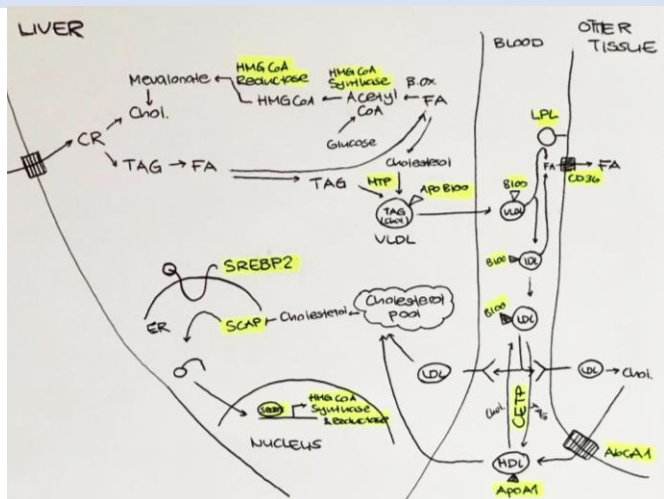 LIVER
BLOOD
OTHER
TISSUE
HMG CoA
Reductase
HMG CoA
Synthase
B.OX.
Mevalonate
HMG CoA
Acetyl
CoA
FA
Chol.
Glucose
CR
Cholesterol
TAG
FA
TAG
MTP
APOB100
TAG
VLDL
LPL
FA
FA
CD36
B100
VLDL
B100
IDL
B100
LDL
SREBP2
ER
SCAP
Cholesterol
Cholesterol
pool
LDL
LDL
Chol.
Chol.
CETP
HMG CoA
Synthase
& Reductase
NUCLEUS
HDL
ApoA1
AbCA1